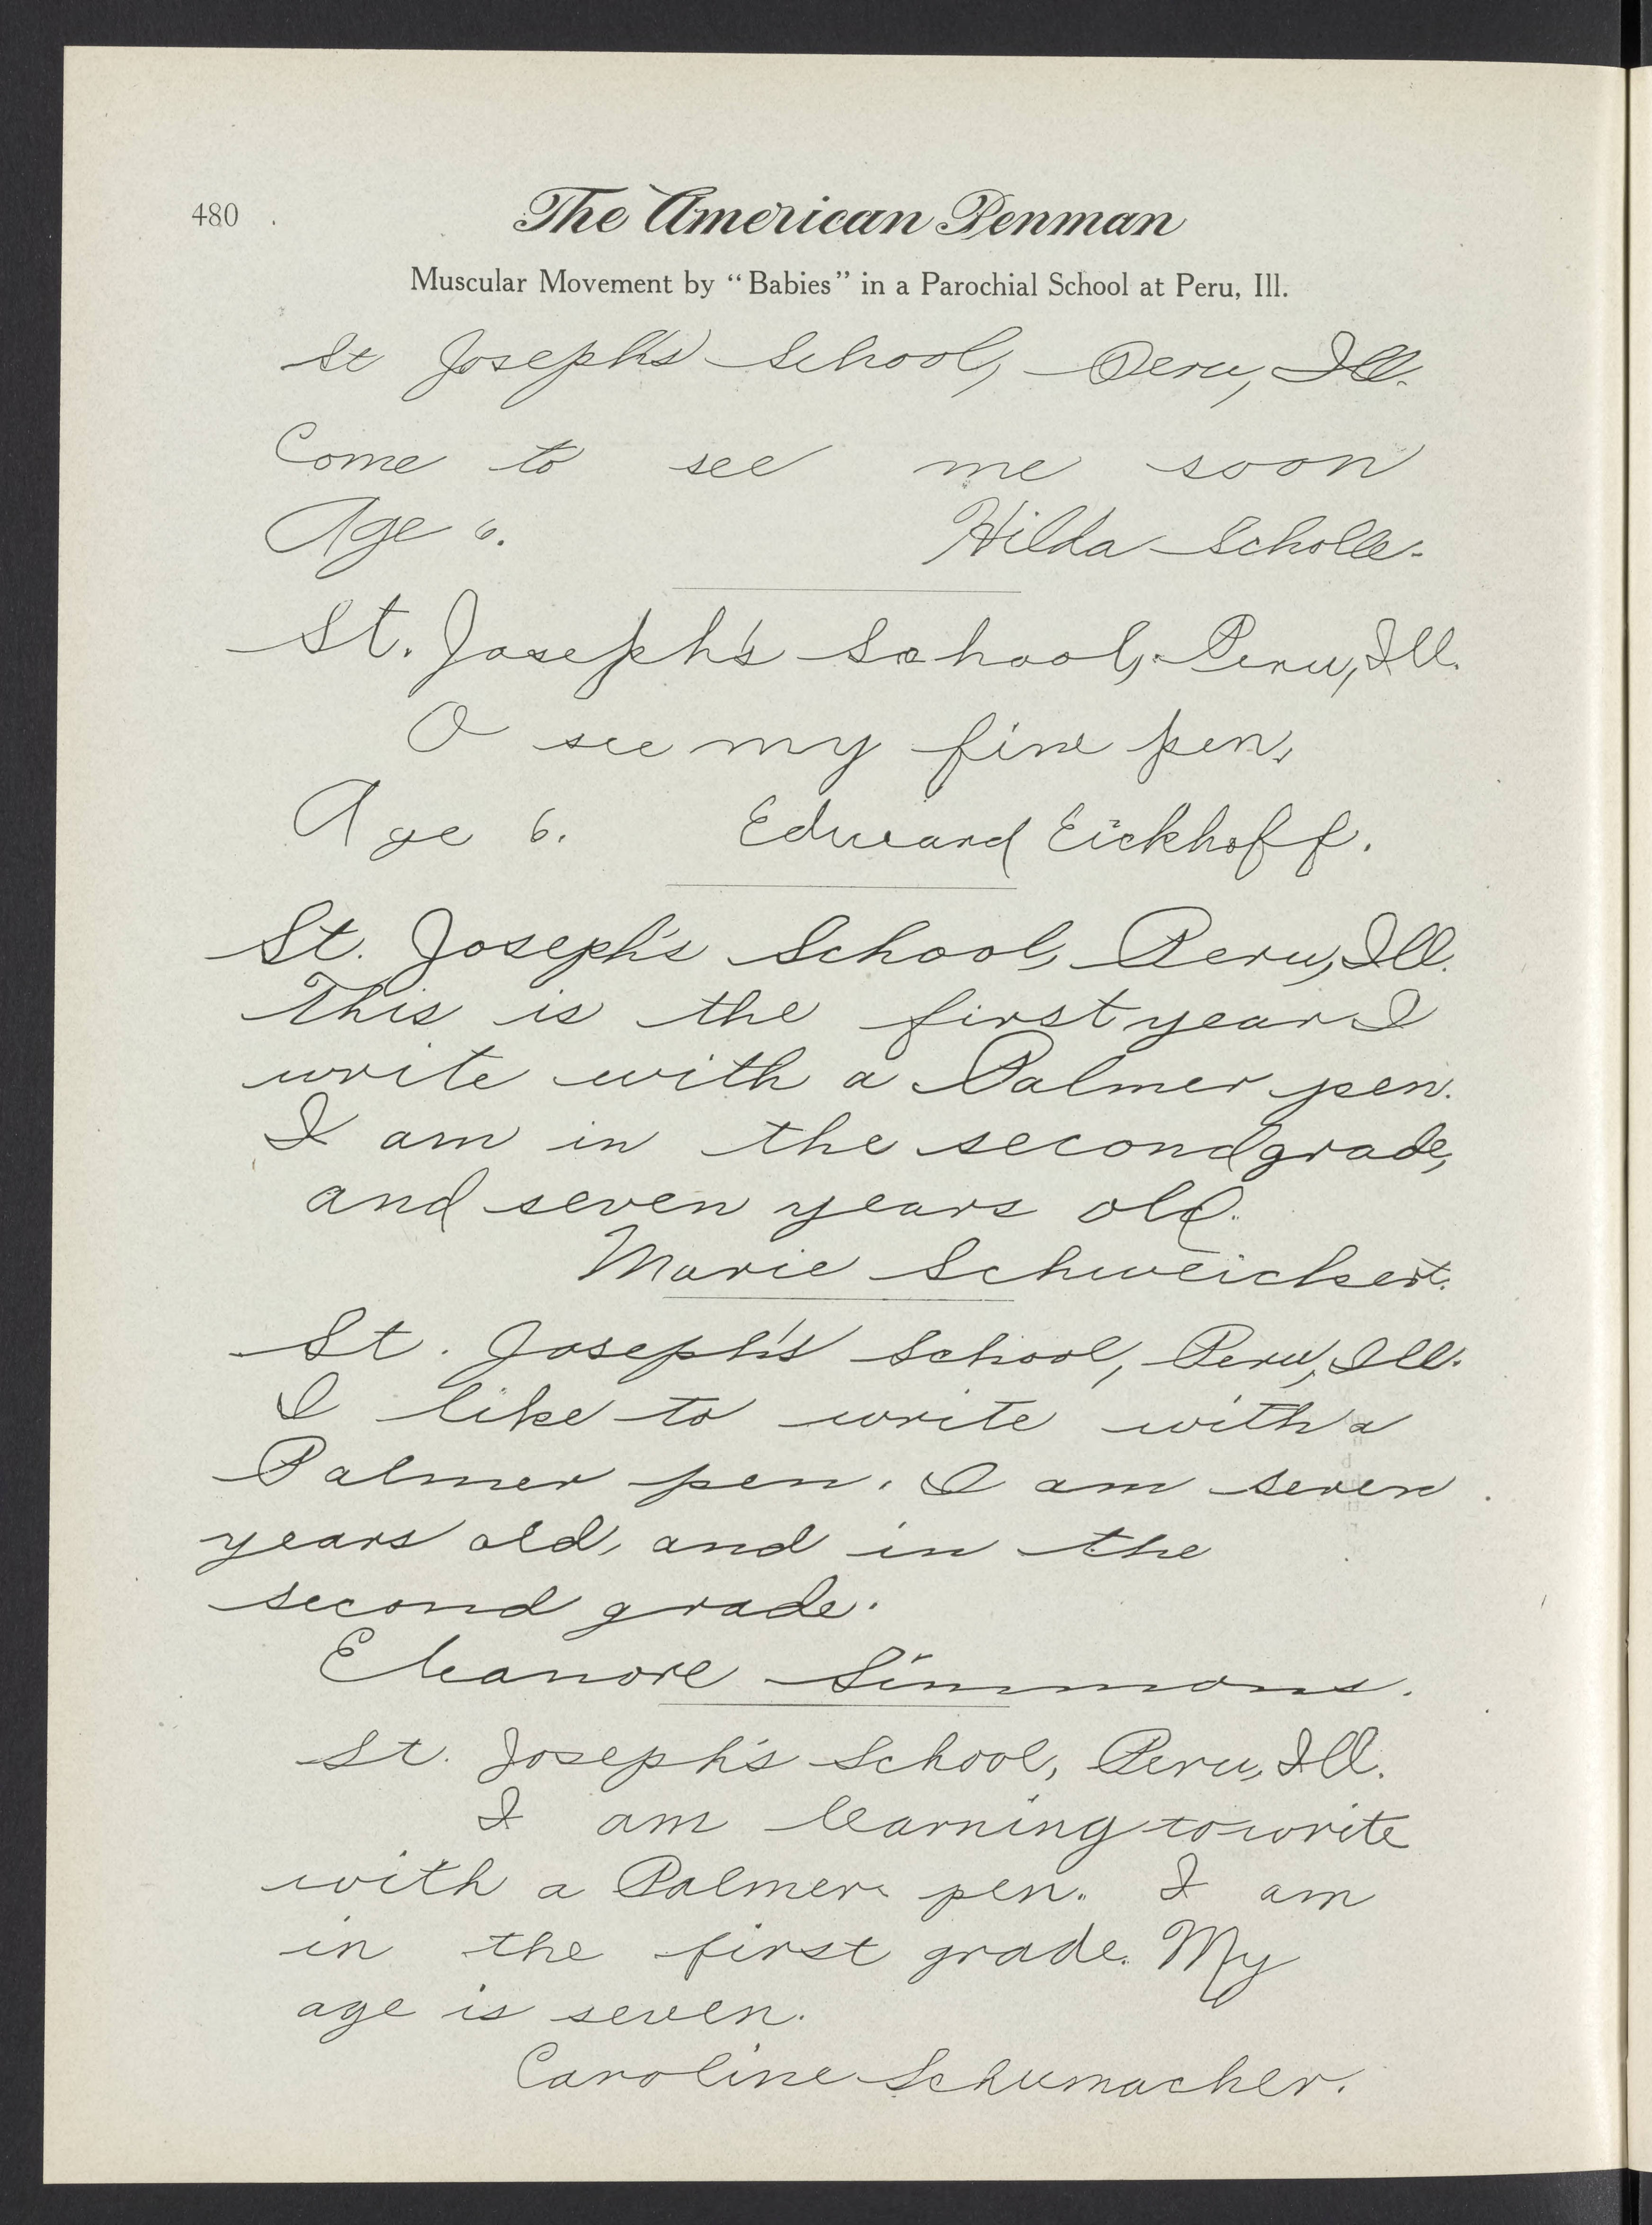 480 .
The American Penman
Muscular Movement by “Babies” in a Parochial School at Peru, Ill.
St Joseph's School, Peru, Ill.
Come to see me soon
Age 6. Hilda Scholle.
St. Joseph's School, Peru, Ill.
O see my fine pen,
Age 6. Edward Eickhoff.
St. Joseph's School, Peru, Ill.
This is the first year I
write with a Palmer pen.
I am in the second grade,
and seven years old.
Marie Schweickert.
St. Joseph's School, Peru, Ill.
I like to write with a
Palmer pen. I am seven
years old, and in the
second grade.
Eleanore Simmons.
St. Joseph's School, Peru, Ill.
I am learning to write
with a Palmer pen. I am
in the first grade. My
age is seven.
Caroline Schumacher.